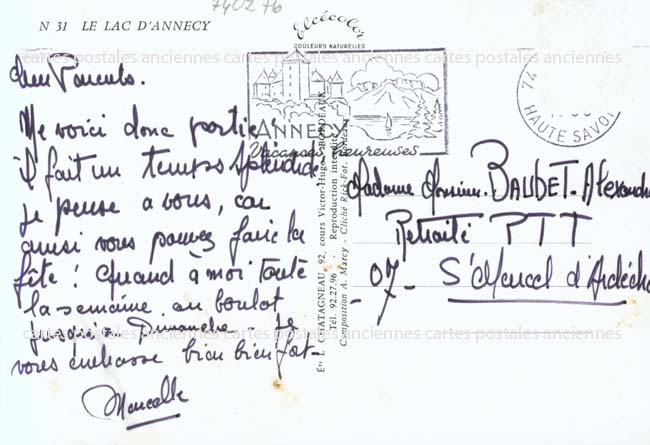 740276
N 31 LE LAC D'ANNECY
Elcécolor
COULEURS NATURELLES
cartes postales anciennes cartes postales anciennes cartes postales anciennes
Chers Parents.
Me voici donc partie
il fait un temps splendide
je pense a vous, car
ainsi vous pouvez faire la
fête ! Quand à moi toute
la semaine au boulot
jusqu'a Dimanche Je
vous embrasse bien bien fort
Marcelle
ANNECY
Vacances heureuses
74
HAUTE SAVOI
Ed. L. CHATAGNEAU, 92, cours Victor-Hugo - BORDEAUX
Tél. 92.27.96 - Reproduction interdite
Composition A. Marcy - Cliché Rick-Fot. Bordeaux
Madame Monsieur. BAUDET. Alexandre
Retraité PTT
- 07 - St Marcel d'Ardèche
cartes postales anciennes cartes postales anciennes cartes postales anciennes